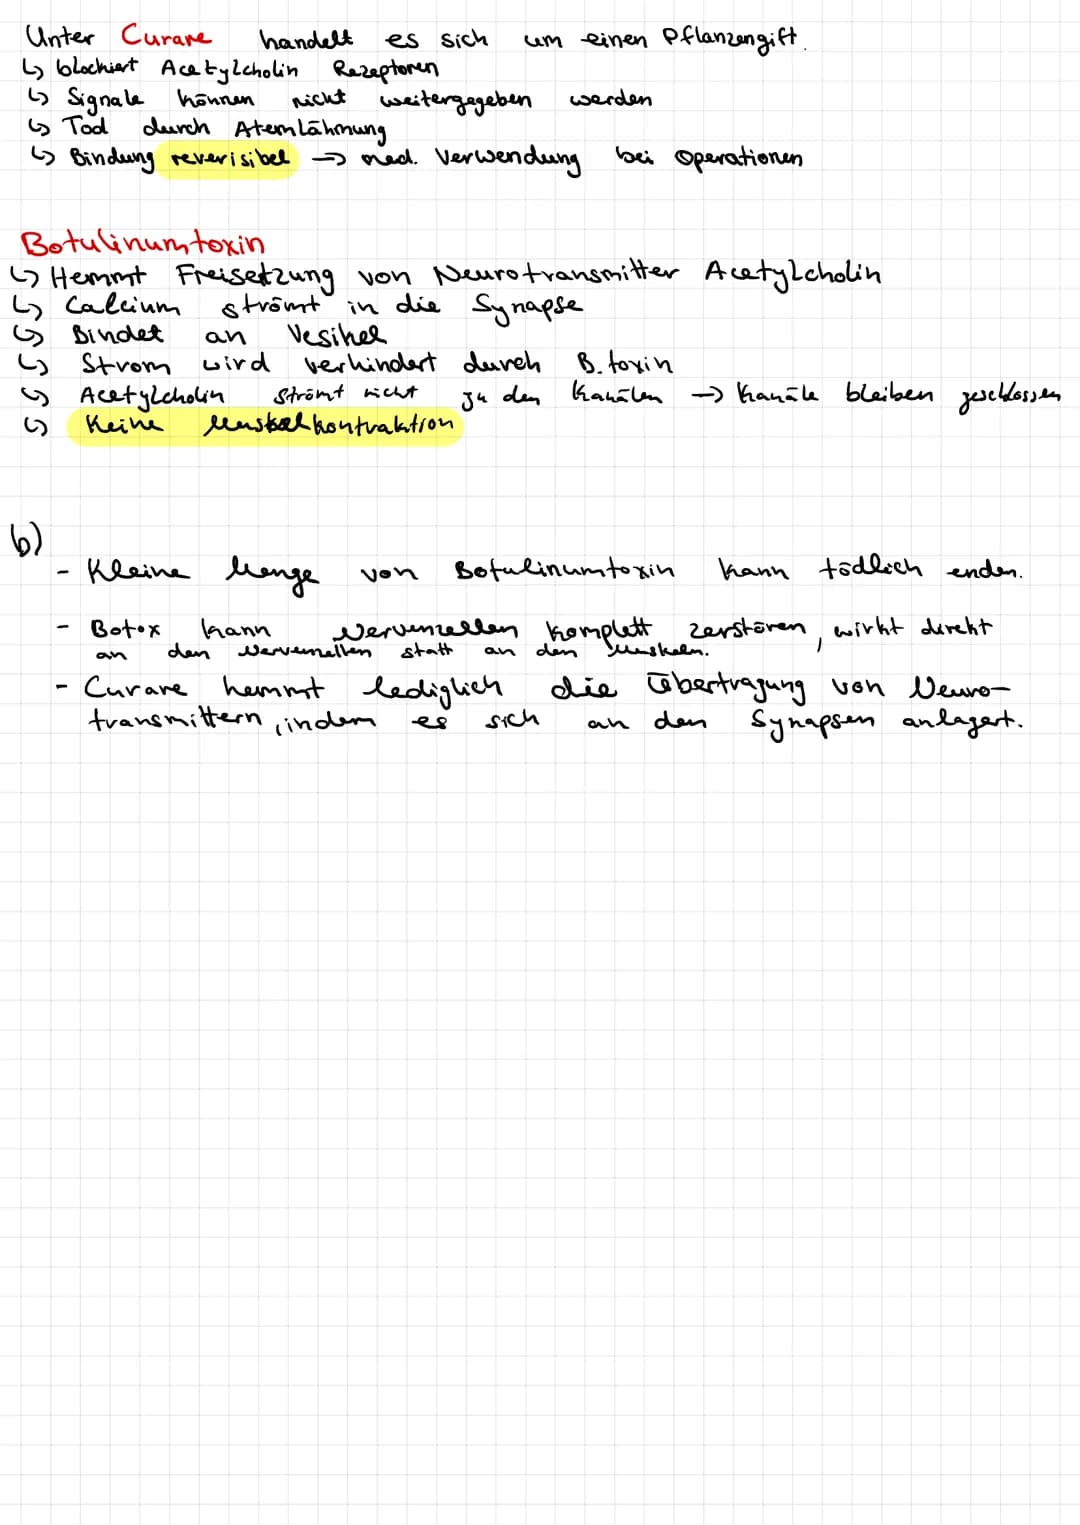 Unter Curare handelt es sich um einen Pflanzengift.
↳ blockiert Acetylcholin Rezeptoren
↳ Signale können nicht weitergegeben werden
↳ Tod durch Atemlähmung
↳ Bindung reverisibel → med. Verwendung bei Operationen
Botulinumtoxin
↳ Hemmt Freisetzung von Neurotransmitter Acetylcholin
↳ Calcium strömt in die Synapse
↳ Bindet an Vesikel
↳ Strom wird verhindert durch B.toxin
↳ Acetylcholin strömt nicht zu den Kanälen → Kanäle bleiben geschlossen
↳ Keine Muskelkontraktion
b)
- Kleine Menge von Botulinumtoxin kann tödlich enden.
- Botox kann Nervenzellen komplett zerstören, wirkt direkt
an den Nervenzellen statt an den Muskeln.
- Curare hemmt lediglich die Übertragung von Neuro-
transmittern, indem es sich an den Synapsen anlagert.